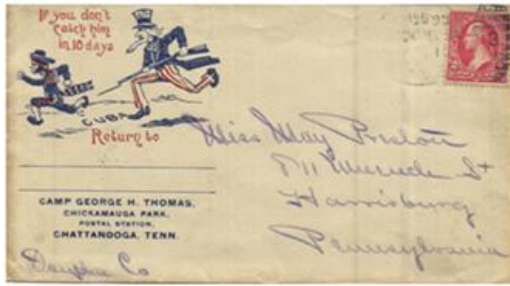 If you don't
catch him
in 10 days
CUBA
Return to
CAMP GEORGE H. THOMAS,
CHICKAMAUGA PARK,
POSTAL STATION,
CHATTANOOGA, TENN.
Miss May Preston
811 St
Harrisburg
Pennsylvania
Dauphin Co